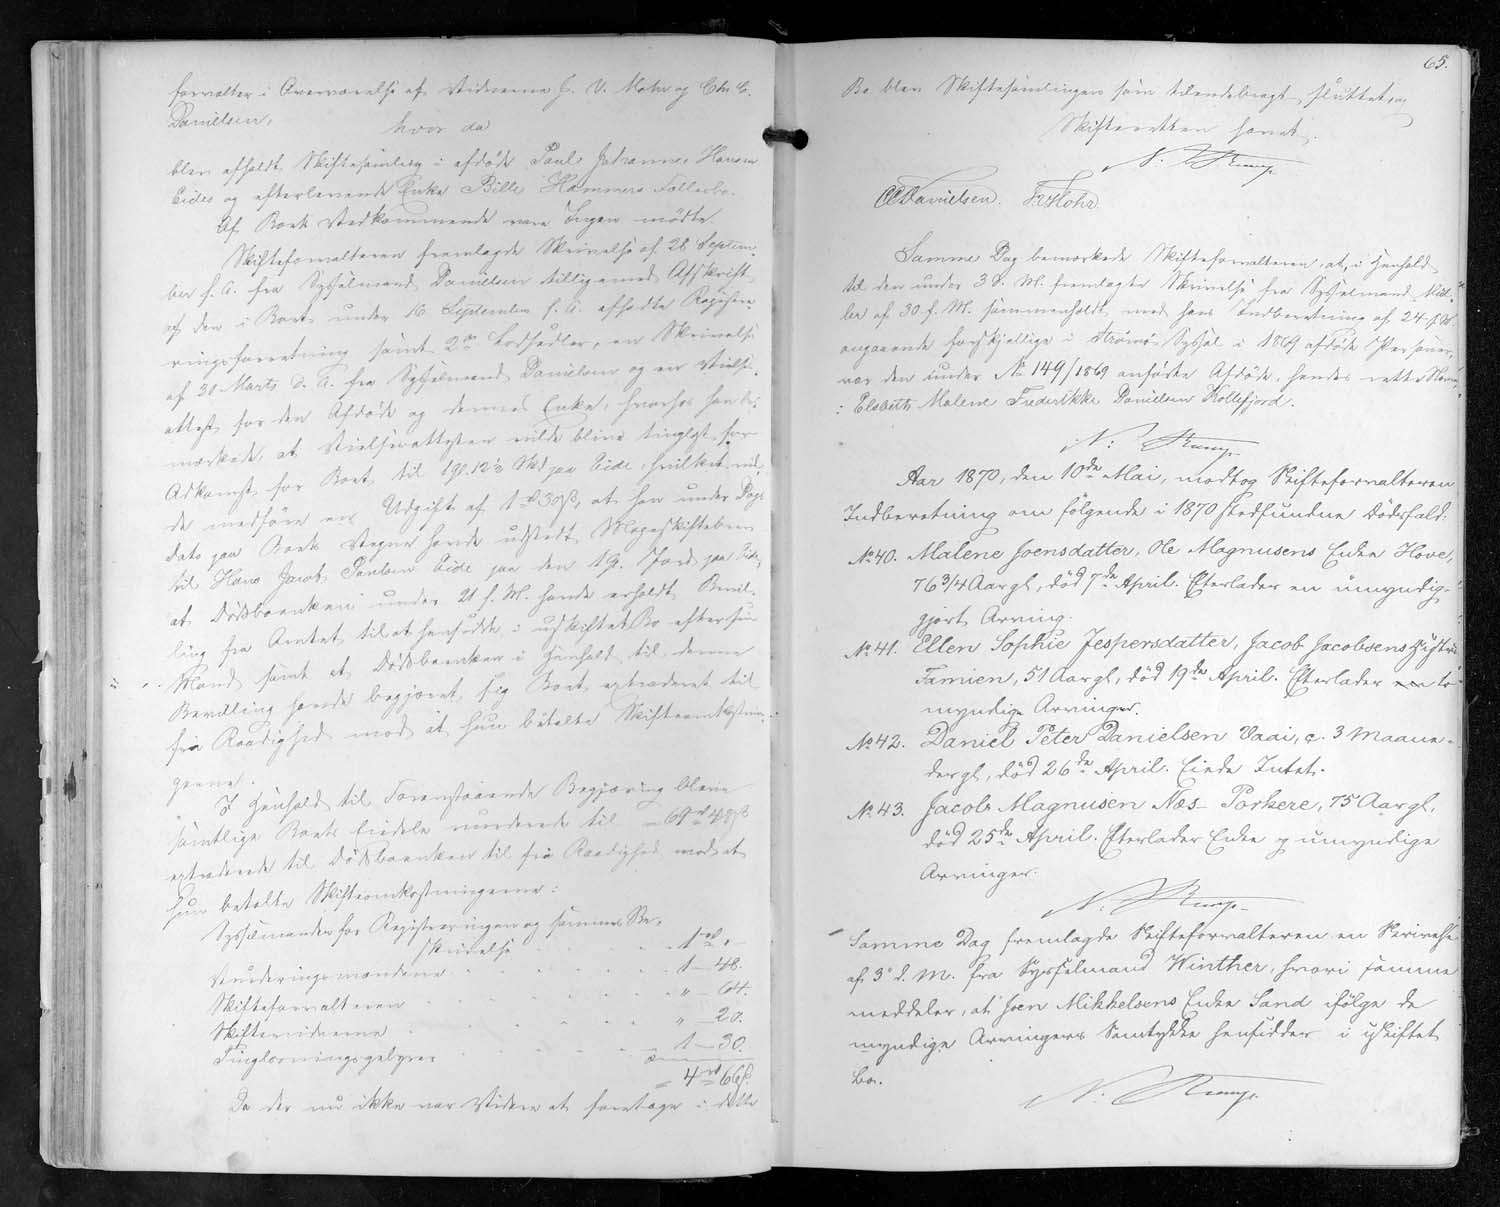 forvalter i Overværelse af Vidnerne F. V. Mohr og Chr. C.
Danielsen,
hvor da
blev afholdt Skiftesamling i afdøde Poul Johannes Hansen
Eides og efterlevende Enke Bille Hammers Fællesbo.
Af Boet Vedkommende vare Ingen mødte.
Skifteforvalteren fremlagde Skrivelse af 26 Septem-
ber f. A. fra Sysselmand Danielsen tilligemed Afskrift
af den i Boet under 16 September f. A. afholdte Registe-
ringsforretning samt 2de Lodsedler, en Skrivelse
af 30 Marts d. A. fra Sysselmand Danielsen og en Vielses-
attest for den Afdøde og dennes Enke, hvorhos han be-
mærkede, at Vielsesattesten vilde blive tinglyst som
Adkomst for Boet til 1 gl. 12 2/3 Skd paa Eide, hvilket vil-
de medføre en Udgift af 1 rd. 30 ß, at han under Dags
Dato paa Boets Vegne havde udstedt Mageskiftebrev
til Hans Jacob Poulsen Eide paa den 1 g. Jord paa Eide,
at Dødsboenken under 21 f. M. havde erholdt Bevil-
ling fra Amtet til at hensidde i uskiftet Bo efter sin
Mand samt at Dødsboenken i Henhold til denne
Bevilling havde begjæret sig Boet extraderet til
fri Raadighed mod at hun betalte Skifteomkostnin-
gerne.
I Henhold til Foranstaaende Begjæring bleve
samtlige Boets Eiendele vurderede til 69 rd 48 ß
extraderede til Dødsboenken til fri Raadighed mod at
hun betalte Skifteomkostningerne:
Sysselmanden for Registreringen og sammes Be-
skrivelse 1 rd " -
Vurderingsmændene 1 - 48.
Skifteforvalteren " - 64.
Skiftevidnerne " - 20.
Tinglæsningsgebyrer 1 - 30.
= 4 rd 66 ß.
Da der nu ikke var Videre at foretage i dette
65.
Bo blev Skiftesamlingen som tilendebragt sluttet, og
Skifteretten hævet.
N: Krump.
CCDanielsen. FVMohr
Samme Dag bemærkede Skifteforvalteren, at, i Henhold
til den under 3 d. M. fremlagte Skrivelse fra Sysselmand Mül-
ler af 30 f. M. sammenholdt med hans Indberetning af 24 f. M.
angaaende forskjellige i Strømø Syssel i 1869 afdøde Personer,
var den under No 149/1869 anførte Afdøde, hendes rette Navn
: Elsbeth Malene Frederikke Danielsen Kollefjord.
N: Krump.
Aar 1870, den 10de Mai, modtog Skifteforvalteren
Indberetning om følgende i 1870 stedfundne Dødsfald:
No 40. Malene Joensdatter, Ole Magnusens Enke Hove,
76 3/4 Aar gl, død 7de April. Efterlader en umyndig-
gjort Arving.
No 41. Ellen Sophie Jespersdatter, Jacob Jacobsens Hustru
Famien, 51 Aar gl, død 19de April. Efterlader en to
myndige Arvinger.
No 42. Daniel Peter Danielsen Vaai, c. 3 Maane-
der gl, død 26de April. Eiede Intet.
No 43. Jacob Magnusen Næs Porkere, 75 Aar gl,
død 25de April. Efterlader Enke og umyndige
Arvinger.
N: Krump.
Samme Dag fremlagde Skifteforvalteren en Skrivelse
af 3' d. M. fra Sysselmand Winther, hvori samme
meddeler, at Joen Mikkelsens Enke Sand ifølge de
myndige Arvingers Samtykke hensidder i uskiftet
Bo.
N: Krump.